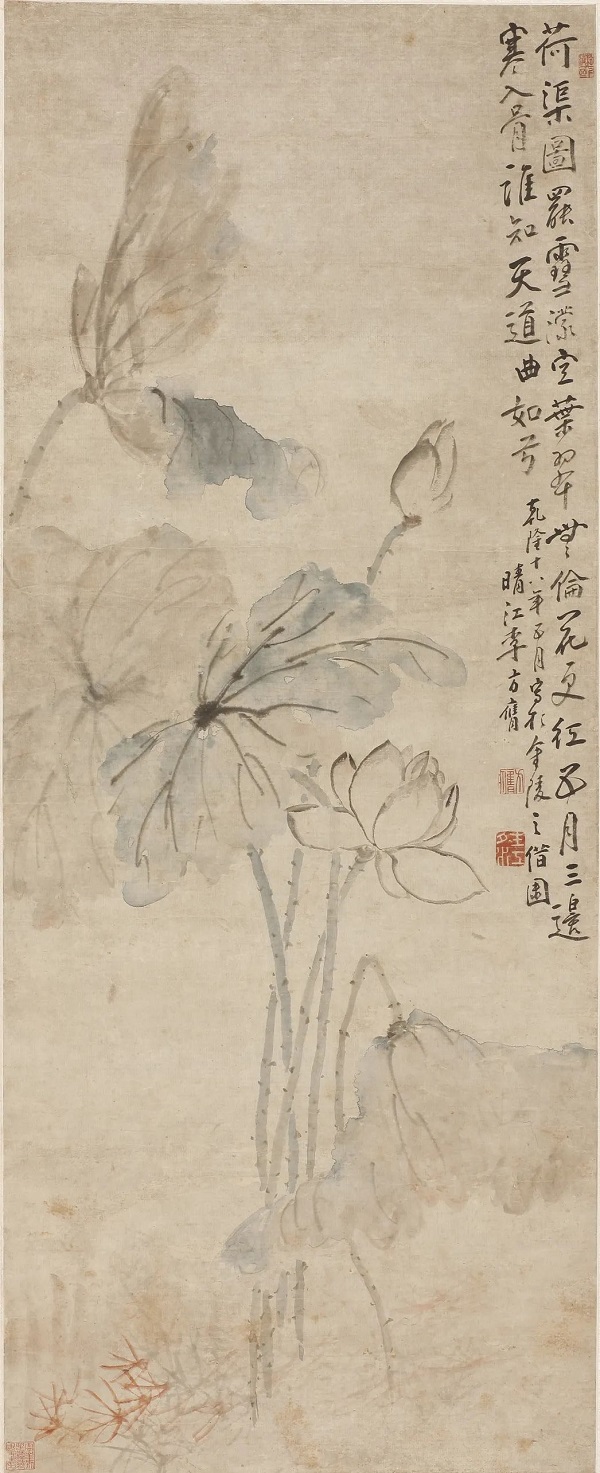 荷渠圖罷墨濛空葉翠無倫花更紅五月三邊
寒入骨誰知天道曲如弓
乾隆十八年五月寫於金陵之借園
晴江李方膺